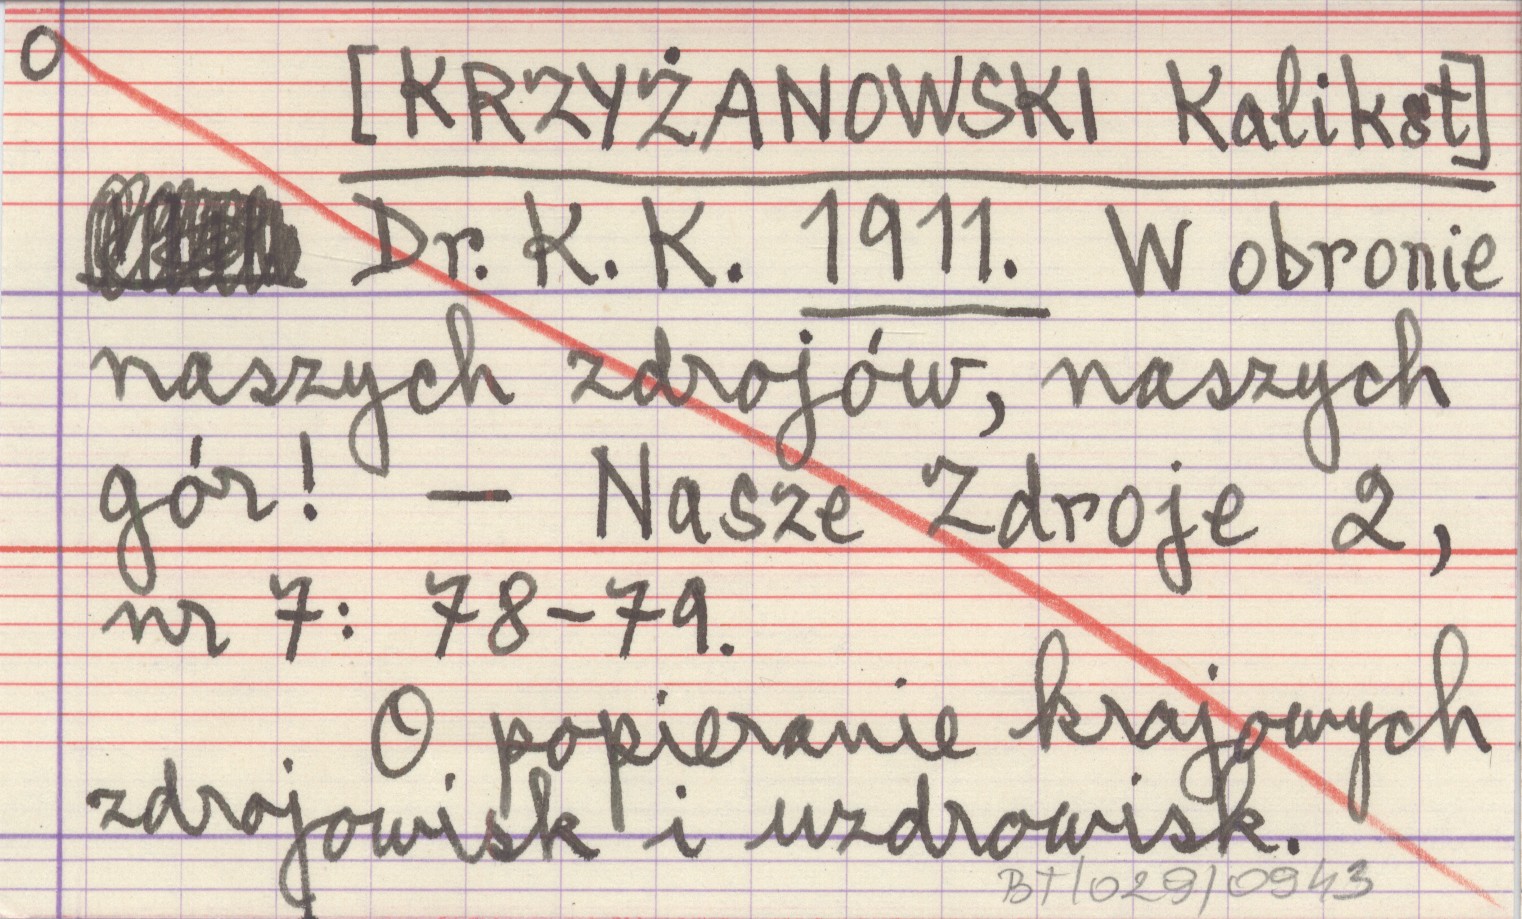 O
[KRZYŻANOWSKI Kalikst]
Dr. K. K. 1911. W obronie
naszych zdrojów, naszych
gór! — Nasze Zdroje 2,
nr 7: 78-79.
O popieranie krajowych
zdrojowisk i uzdrowisk.
BT/029/0943